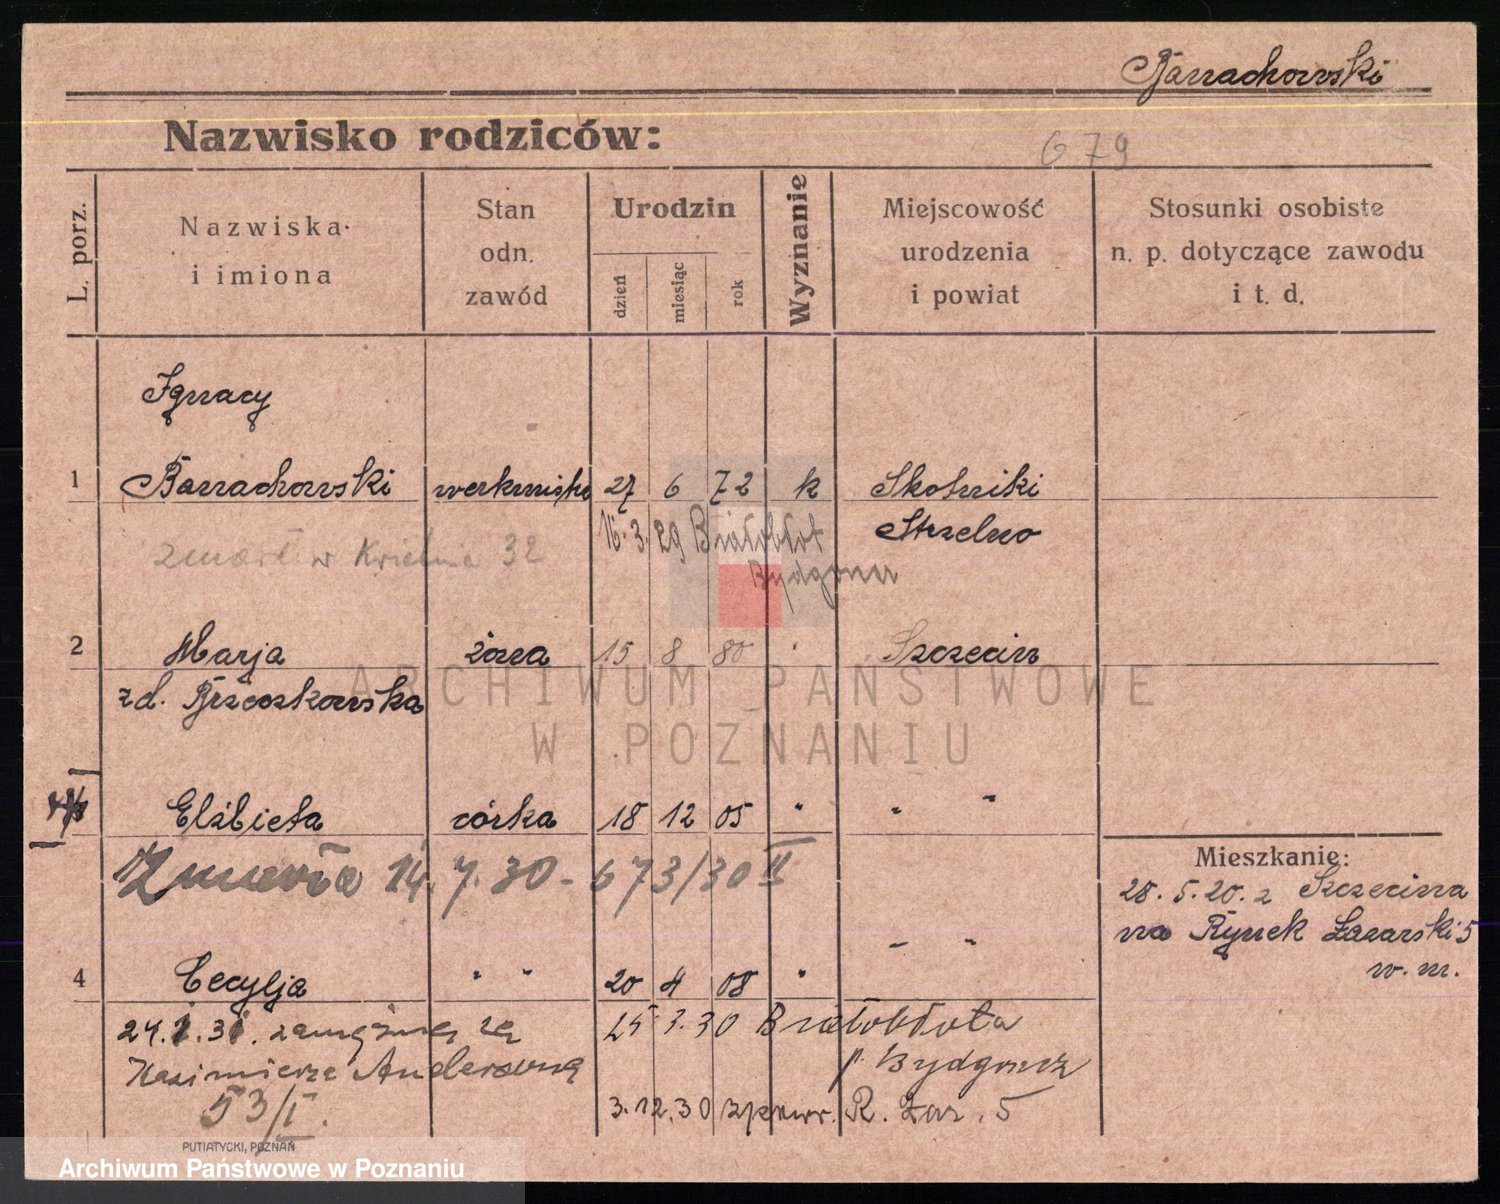 Barrachowski
Nazwisko rodziców:
679
L. porz.
Nazwiska
i imiona
Stan
odn.
zawód
Urodzin
dzień
miesiąc
rok
Wyznanie
Miejscowość
urodzenia
i powiat
Stosunki osobiste
n. p. dotyczące zawodu
i t. d.
Ignacy
1 Barrachowski 27 6 72 k Skotniki
16. 3. 29 Białobłot Strzelno
w 32
2 Marja żona 15 8 80 " Szczecin
zd. Brzoszkowska
ARCHIWUM PAŃSTWOWE
W POZNANIU
Elżbieta córka 18 12 05 " " "
Zmarła 14. 7. 30 - 673/30 II
Mieszkanie:
28. 5. 20. z Szczecina
na Rynek Łazarski 5
w. m.
4 Cecylja " " 20 4 08 " " "
24.1.31. zamężna za 25 3. 30 Białobłota
Kazimierza p. Bydgoszcz
53/I. 3.12.30 R. Łaz. 5
PUTIATYCKI, POZNAŃ
Archiwum Państwowe w Poznaniu